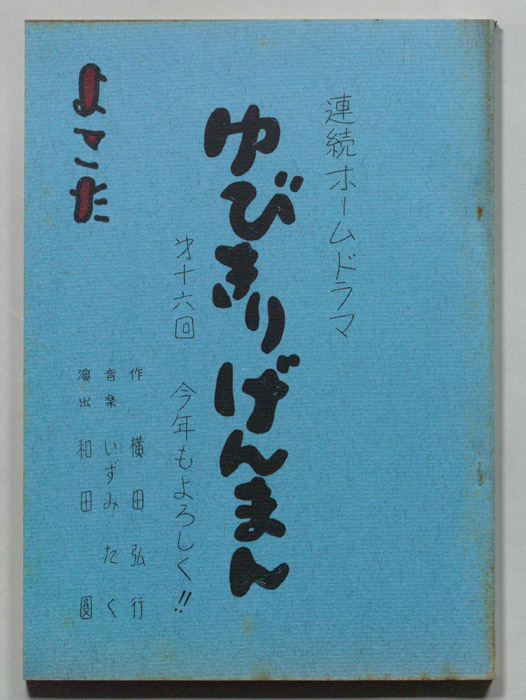 連続ホームドラマ
ゆびきりげんまん
第十六回 今年もよろしく!!
作 横田弘行
音楽 いずみたく
演出 和田 圓
よこた